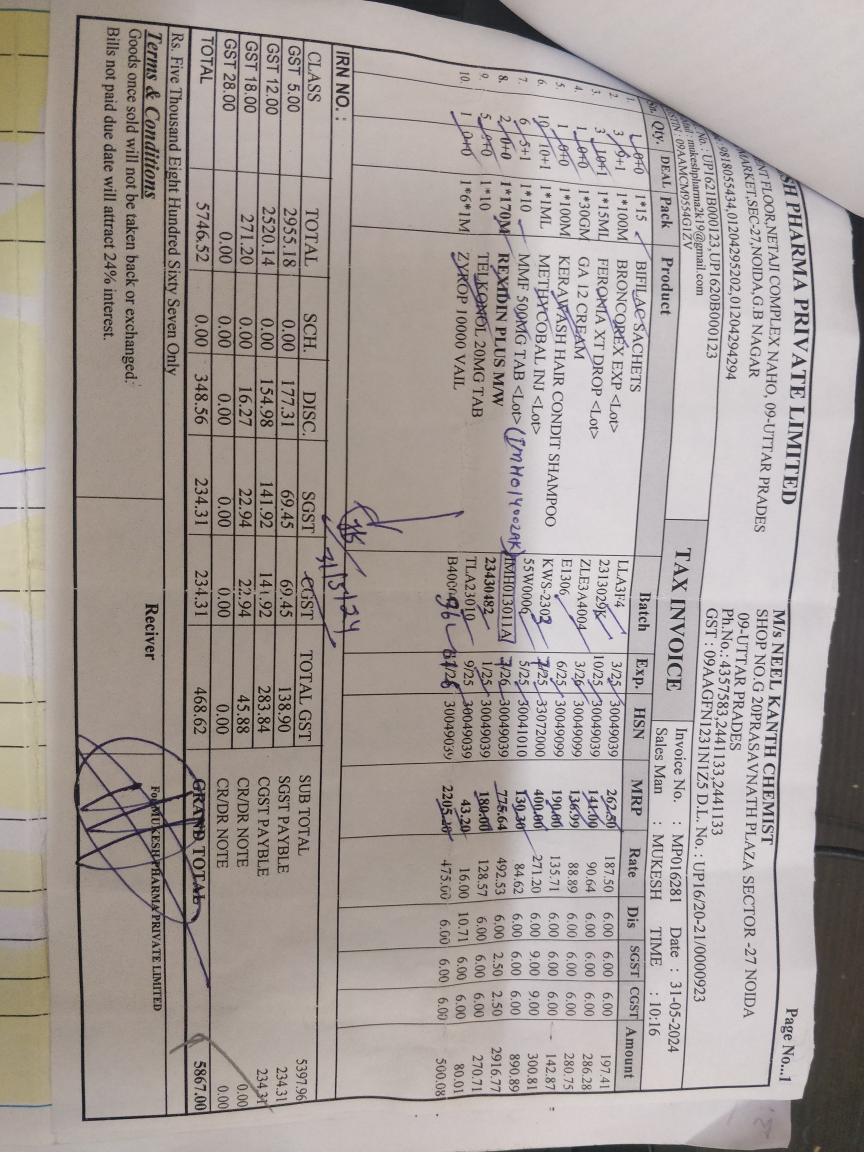 SH PHARMA PRIVATE LIMITED
ENT FLOOR,NETAJI COMPLEX NAHO, 09-UTTAR PRADES
MARKET,SEC-27,NOIDA,G.B NAGAR
9818055434,01204295202,01204294294
No. : UP1621B000123,UP1620B000123
mail : mukeshpharma2k19@gmail.com
STIN : 09AAMCM9554G1ZV
TAX INVOICE
Page No...1
M/s NEEL KANTH CHEMIST
SHOP NO.G 20PRASAVNATH PLAZA SECTOR -27 NOIDA
09-UTTAR PRADES
Ph.No.: 4357583,2441133,2441133
GST : 09AAGFN1231N1Z5 D.L. No. : UP16/20-21/0000923
Invoice No. : MP016281 Date : 31-05-2024
Sales Man : MUKESH TIME : 10:16
Sn. Qty. DEAL Pack Product Batch Exp. HSN MRP Rate Dis SGST CGST Amount
1. 0+0 1*15 BIFILAC SACHETS LLA3F4 3/25 30049039 262.50 187.50 6.00 6.00 6.00 197.41
2. 3 9+1 1*100M BRONCOREX EXP <Lot> 2313029K 10/25 30049039 141.00 90.64 6.00 6.00 6.00 286.28
3. 3 10+1 1*15ML FERONIA XT DROP <Lot> ZLE3A4004 3/26 30049099 88.89 6.00 6.00 6.00 280.75
4. 1 0+0 1*30GM GA 12 CREAM E1306 6/25 30049099 190.00 135.71 6.00 6.00 6.00 142.87
5. 1 0+0 1*100M KERAWASH HAIR CONDIT SHAMPOO KWS-2302 33072000 400.00 271.20 6.00 9.00 9.00 300.81
6. 10 10+1 1*1ML METHYCOBAL INJ <Lot> 55W0006 5/25 30041010 130.30 84.62 6.00 6.00 6.00 890.89
7. 6 5+1 1*10 MMF 500MG TAB <Lot> (IMH014002AK) IMH013011A 30049039 775.64 492.53 6.00 2.50 2.50 2916.77
8. 2 0+0 1*170M REXIDIN PLUS M/W 23430482 1/25 30049039 180.00 128.57 6.00 6.00 6.00 270.71
9. 5 0+0 1*10 TELKONOL 20MG TAB TLA23010 9/25 30049039 43.20 16.00 10.71 6.00 6.00 80.01
10. 1 0+0 1*6*1M ZYROP 10000 VAIL 30049039 475.00 6.00 6.00 6.00 500.08
31/5/24
IRN NO. :
CLASS TOTAL SCH. DISC. SGST CGST TOTAL GST
GST 5.00 2955.18 0.00 177.31 69.45 69.45 138.90
GST 12.00 2520.14 0.00 154.98 141.92 141.92 283.84
GST 18.00 271.20 0.00 16.27 22.94 22.94 45.88
GST 28.00 0.00 0.00 0.00 0.00 0.00 0.00
TOTAL 5746.52 0.00 348.56 234.31 234.31 468.62
SUB TOTAL 5397.96
SGST PAYBLE 234.31
CGST PAYBLE 234.31
CR/DR NOTE 0.00
CR/DR NOTE 0.00
GRAND TOTAL 5867.00
Rs. Five Thousand Eight Hundred Sixty Seven Only
Terms & Conditions
Goods once sold will not be taken back or exchanged.
Bills not paid due date will attract 24% interest.
Reciver
For MUKESH PHARMA PRIVATE LIMITED